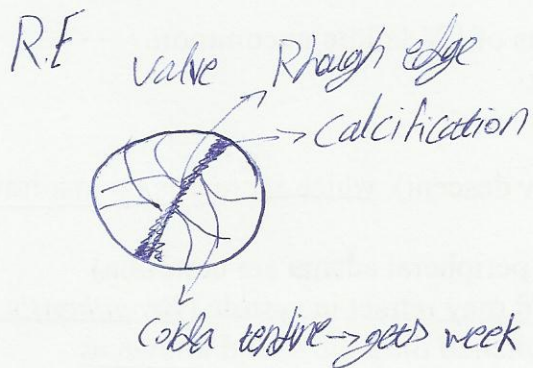 R.F
valve Rhough edge
Calcification
Corda tendine → gets week